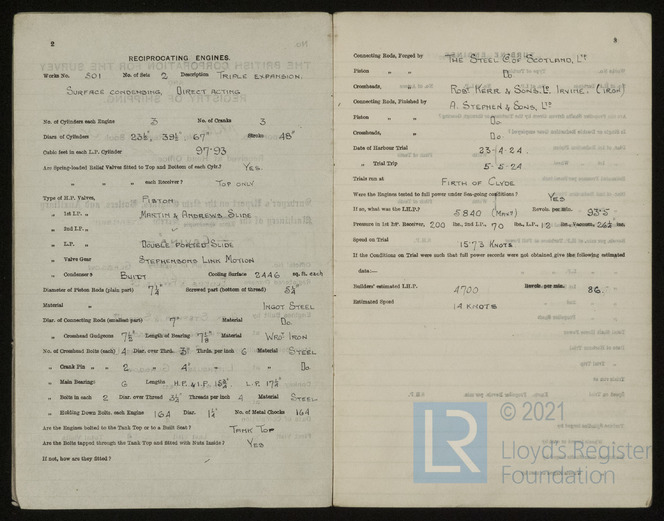 2
RECIPROCATING ENGINES.
Works No. 501 No. of Sets 2 Description TRIPLE EXPANSION.
SURFACE CONDENSING, DIRECT ACTING
No. of Cylinders each Engine 3 No. of Cranks 3
Diars. of Cylinders 23½" 39½" 67" Stroke 48"
Cubic feet in each L.P. Cylinder 97.93
Are Spring-loaded Relief Valves fitted to Top and Bottom of each Cylr.? YES.
" " " each Receiver? TOP ONLY
Type of H.P. Valves, PISTON
" 1st I.P. " MARTIN & ANDREWS SLIDE
" 2nd I.P. "
" L.P. " DOUBLE PORTED SLIDE
" Valve Gear STEPHENSONS LINK MOTION
" Condenser BUILT Cooling Surface 2446 sq. ft. each
Diameter of Piston Rods (plain part) 7¼" Screwed part (bottom of thread)
Material INGOT STEEL
Diar. of Connecting Rods (smallest part) 7" Material Do.
" Crosshead Gudgeons Length of Bearing Material WROT IRON
No. of Crosshead Bolts (each) 4 Diar. over Thrd. 3" Thrds. per inch 6 Material STEEL
" Crank Pin " " 2 " 4" " " Do
" Main Bearings 6 Lengths H.P. & I.P. L.P.
" Bolts in each 2 Diar. over Thread Threads per inch 4 Material STEEL
" Holding Down Bolts, each Engine 164 Diar. 1¼" No. of Metal Chocks 164
Are the Engines bolted to the Tank Top or to a Built Seat? TANK TOP
Are the Bolts tapped through the Tank Top and fitted with Nuts Inside? YES
If not, how are they fitted?
3
Connecting Rods, Forged by THE STEEL CO OF SCOTLAND, LTD
Piston " " Do
Crossheads, ROBT KERR & SONS. LD. IRVINE. (IRON)
Connecting Rods, Finished by A. STEPHEN & SONS, LTD
Piston " Do
Crossheads, " Do
Date of Harbour Trial 23-4-24.
" Trial Trip 5-5-24
Trials run at FIRTH OF CLYDE
Were the Engines tested to full power under Sea-going conditions? YES
If so, what was the I.H.P.? 5840 (MAXM) Revols. per min. 93.5
Pressure in 1st I.P. Receiver, 200 lbs., 2nd I.P., 70 lbs., L.P., 12 lbs., Vacuum, 26½ ins.
Speed on Trial 15.73 KNOTS
If the Conditions on Trial were such that full power records were not obtained give the following estimated
data:—
Builders' estimated I.H.P. 4700 Revols. per min. 86.
Estimated Speed 14 KNOTS
© 2021
LR
Lloyd's Register
Foundation